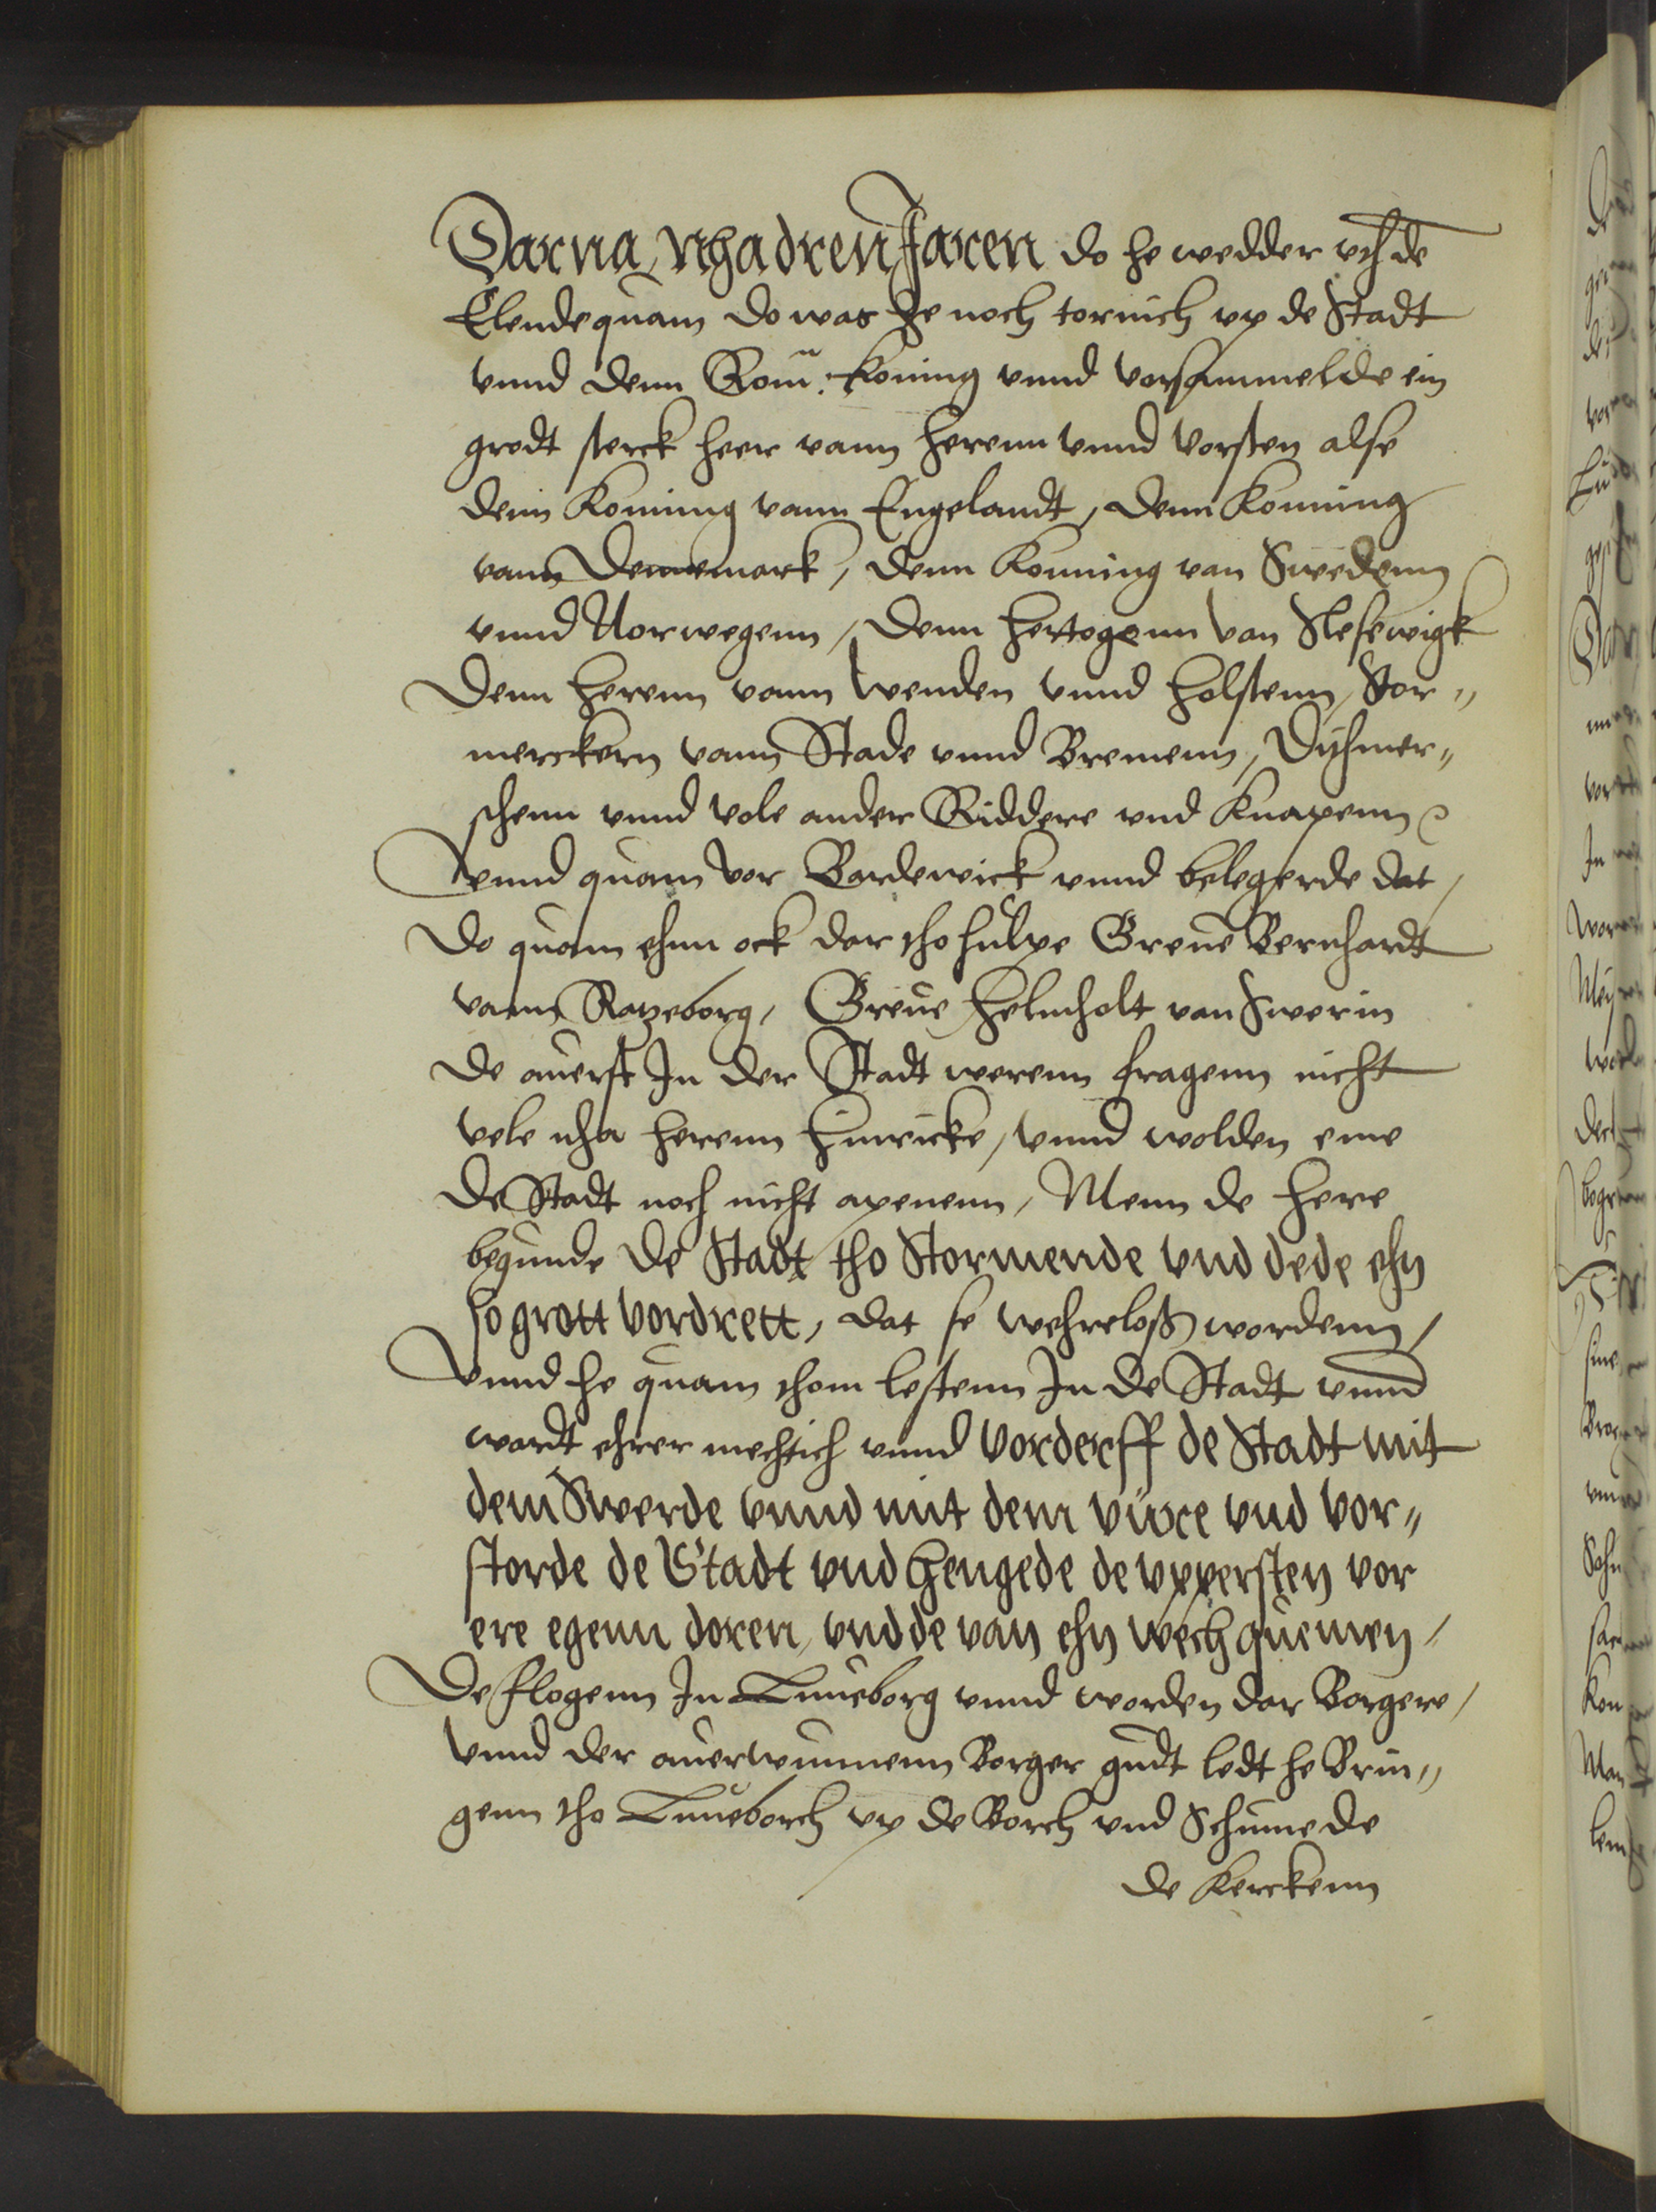 Darna, Nha dren Jaren do he wedder vth de
Elende quam do was he noch tornich vp de Stadt
vnnd denn Rom: Koning vnnd vorsammelde ein
grodt sterck heer vann herenn vnnd Vorsten alse
denn Konning vann Engelandt, denn Konning
vann Dennemark, denn Konning van Swedenn
vnnd Norwegenn, denn hertogenn van Slesewigk
Denn herenn vann Wenden vnnd holstenn, Stor„
merckern vann Stade vnnd Bremenn, Dithmer„
schenn vnnd vele ander Riddere vnd Knapenn
vnnd quam vor Bardewick vnnd belegerde dat,
Do quam ehm ock dar tho hulpe Greue Bernhardt
vann Ratzeborg, Greue Helmholt van Swerin
De auerst In der Stadt werenn fragenn nicht
vele nha herenn Hinricke, vnnd wolden eme
De Stadt noch nicht apenenn, Menn de here
begunde de Stadt tho Stormende vnd dede ehn
so grott vordrett, dat se wehreloß wordenn,
Vnnd he quam thom lestenn In de Stadt vnnd
wardt ehrer mechtich vnnd vorderff de Stadt mit
dem Swerde vnnd mit dem vüre vnd vor„
storde de Stadt vnd hengede de vppersten vor
ere egenn doren, vnd de van ehn wech quemen,
De flogenn In Luneborg vnnd worden dar Borgere,
Vnnd der auerwunnenn Borger gudt ledt he Brin„
genn tho Luneborch vp de Borch vnd Schinnede
de Kerckenn